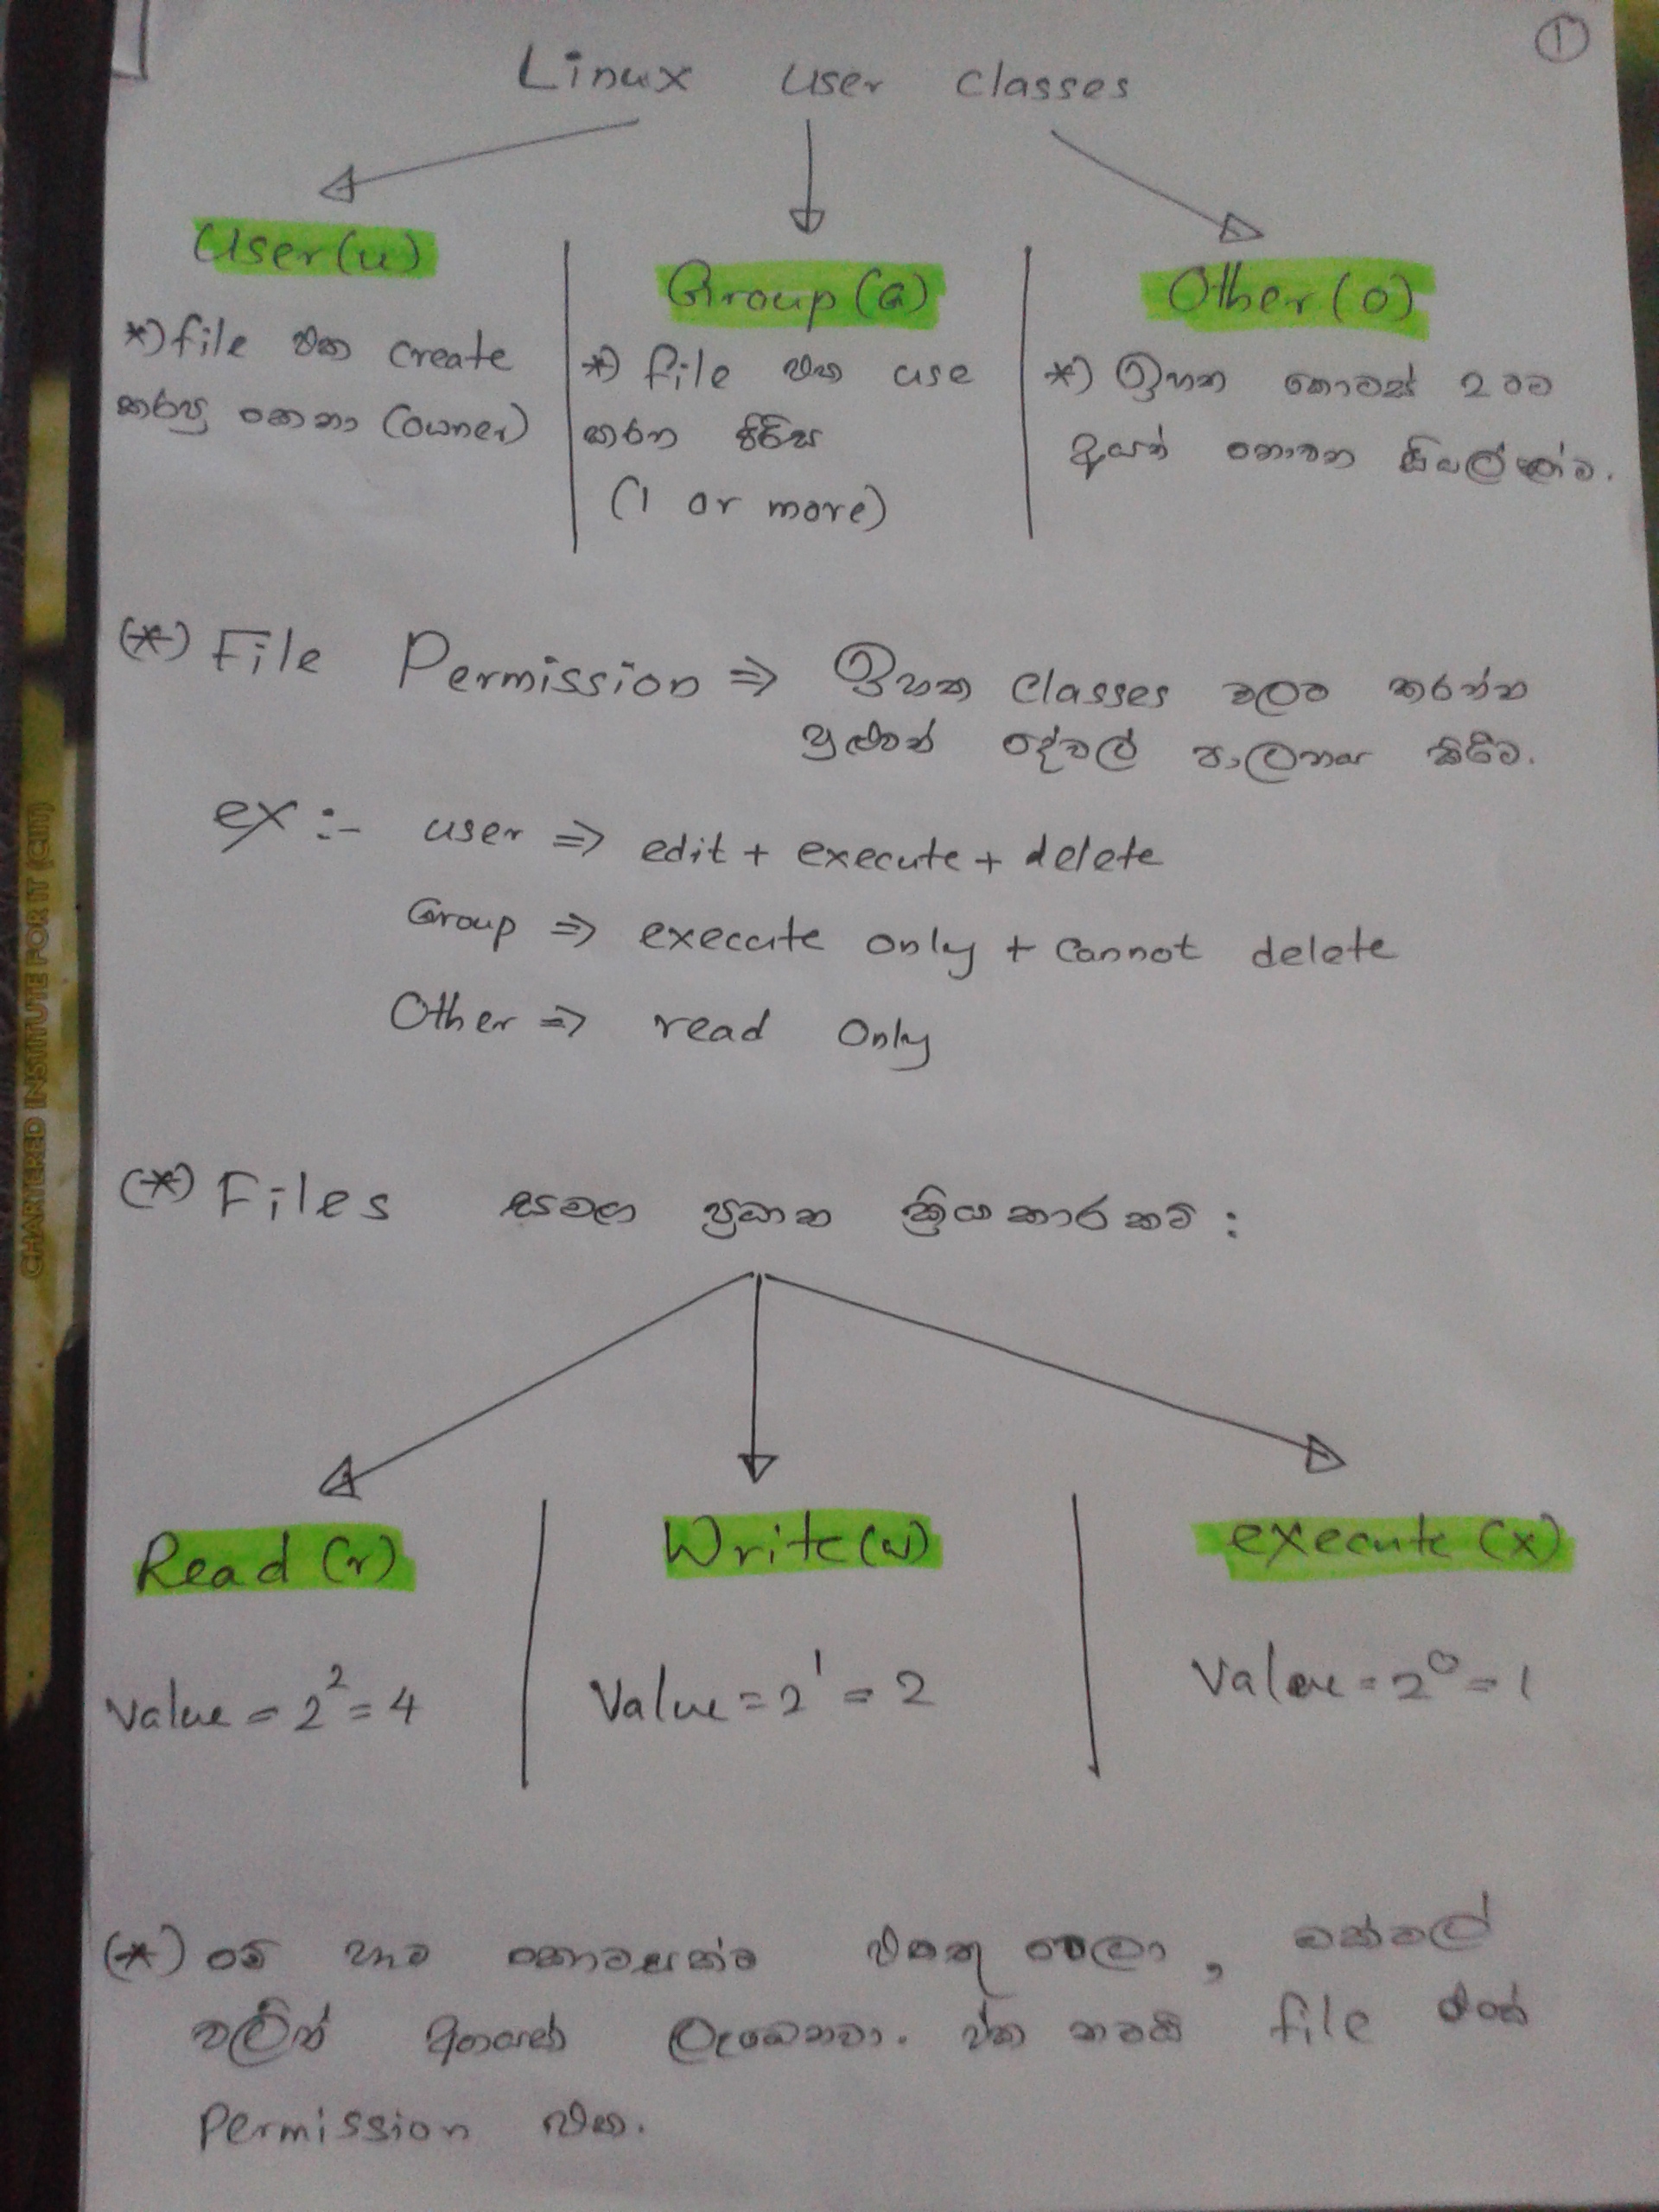 1
Linux user classes
User(u)
*) file එක create
කරපු කෙනා (owner)
Group(G)
*) file එක use
කරන පිරිස
(1 or more)
Other(o)
*) ඉහත කොටස් 2 ටම
අයත් නොවන සියල්ලන්ම.
(*) File Permission ⇒ ඉහත classes වලට කරන්න
පුළුවන් දේවල් පාලනය කිරීම.
ex :- user ⇒ edit + execute + delete
Group ⇒ execute only + cannot delete
Other ⇒ read only
(*) Files සමඟ ප්‍රධාන ක්‍රියකාරකම් :
Read (r)
Value = 2² = 4
Write(w)
Value = 2¹ = 2
execute (x)
Value = 2⁰ = 1
(*) මේ හැම කොටසක්ම එකතු වෙලා,
වලින් ලැබෙනවා. ඒක තමයි file එකේ
Permission එක.
CHARTERED INSTITUTE FOR IT (CIT)